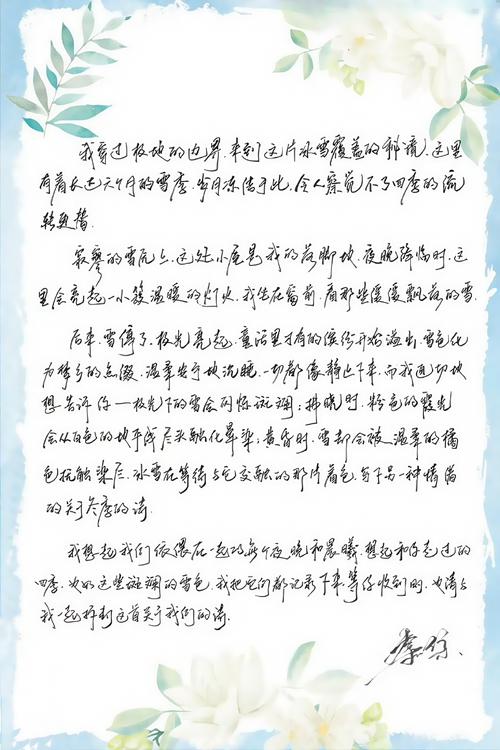 我穿过极地的边界，来到这片冰雪覆盖的秘境。这里
有着长达六个月的雪季，岁月冻结于此，令人察觉不了四季的流
转更替。
寂寥的雪原上，这处小屋是我的落脚地。夜晚降临时，这
里会亮起一小簇温暖的灯火，我坐在窗前，看那些缓缓飘落的雪。
后来，雪停了，极光亮起，童话里才有的缤纷开始溢出，雪色化
为梦乡的点缀，温柔安宁地沉睡。一切都像静止下来，而我迫切地
想告诉你——极光下的雪会闪烁斑斓；拂晓时，粉色的霞光
会从白色的地平线尽头融化晕染；黄昏时，雪却会被温柔的橘
色抚触染尽。冰雪在等待与它交融的那片着色，写下另一种情调
的关于冬季的诗。
我想起我们依偎在一起的每个夜晚和晨曦，想起和你走过的
四季，也如这些斑斓的雪色。我把它们都记录下来，等你收到时，也请与
我一起拆封这首关于我们的诗。